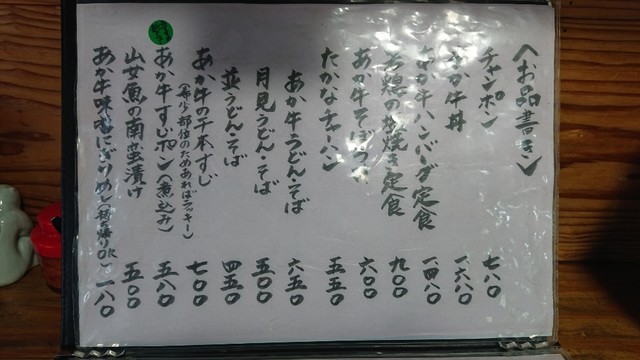 〈お品書き〉
チャンポン 七八〇
あか牛丼 一、六八〇
あか牛ハンバーグ定食 一、四八〇
若鶏の炭焼き定食 九〇〇
あか牛そば 六〇〇
たかなチャーハン 五五〇
あか牛うどん・そば 六五〇
月見うどん・そば 五〇〇
並うどん・そば 四五〇
あか牛の千本すじ 七〇〇
(希少部位のためあればラッキー)
あか牛すじポン(煮込み) 五八〇
山女魚の南蛮漬け 五〇〇
あか牛味噌にぎりめし(持ち帰りOK) 一八〇